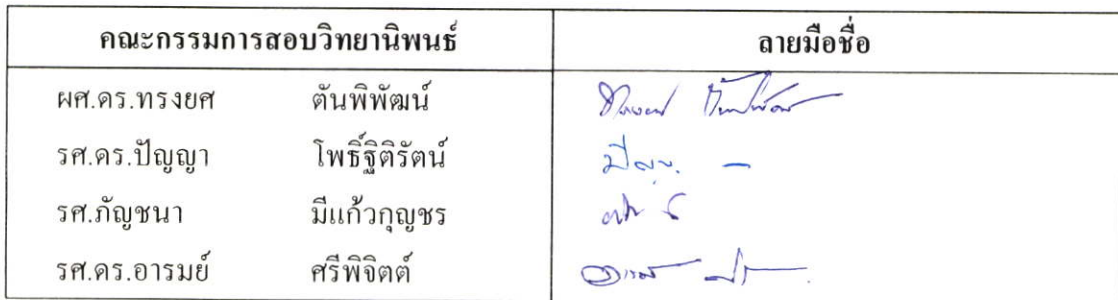 คณะกรรมการสอบวิทยานิพนธ์ ลายมือชื่อ
ผศ.ดร.ทรงยศ ตันพิพัฒน์
รศ.ดร.ปัญญา โพธิ์ฐิติรัตน์
รศ.ภัญชนา มีแก้วกุญชร
รศ.ดร.อารมย์ ศรีพิจิตต์